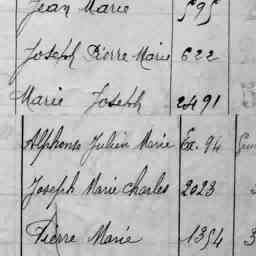 Jean Marie 595
Joseph Pierre Marie 622
Marie Joseph 2491
Alphonse Julien Marie Ex. 94
Joseph Marie Charles 2023
Pierre Marie 1354 3